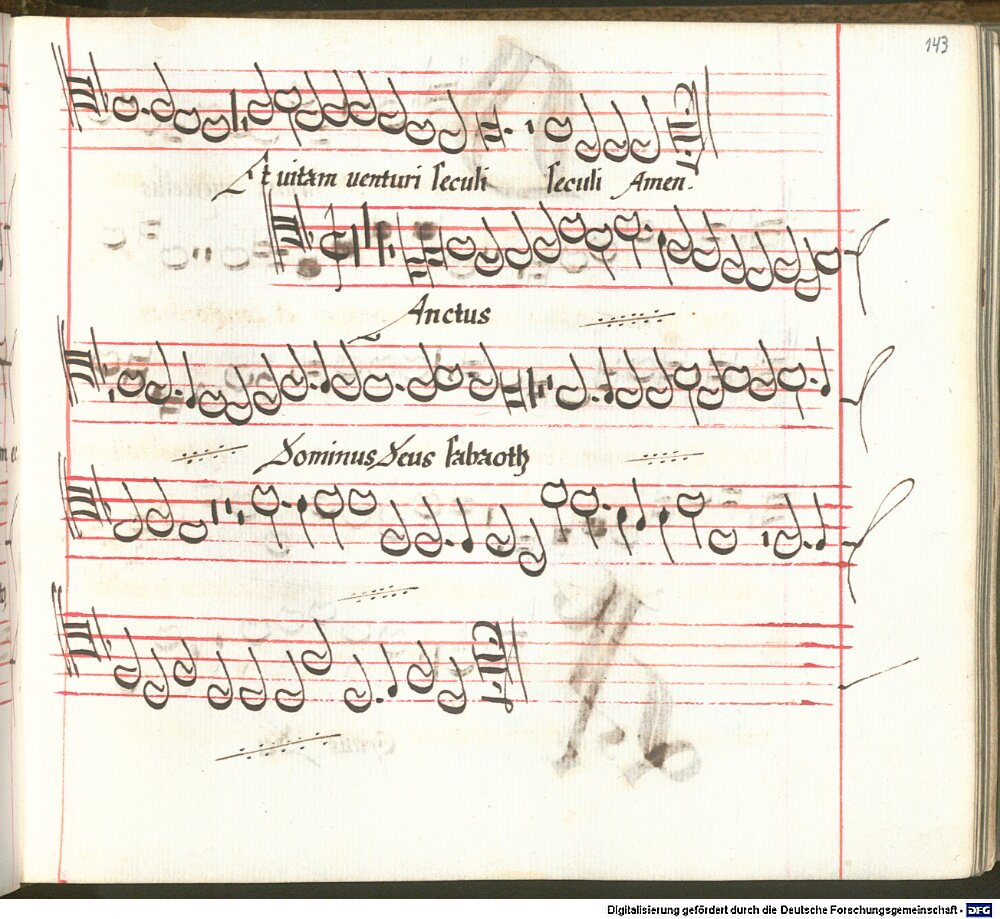 143
Et vitam venturi seculi seculi Amen.
Anctus
Dominus Deus sabaoth
Digitalisierung gefördert durch die Deutsche Forschungsgemeinschaft - DFG